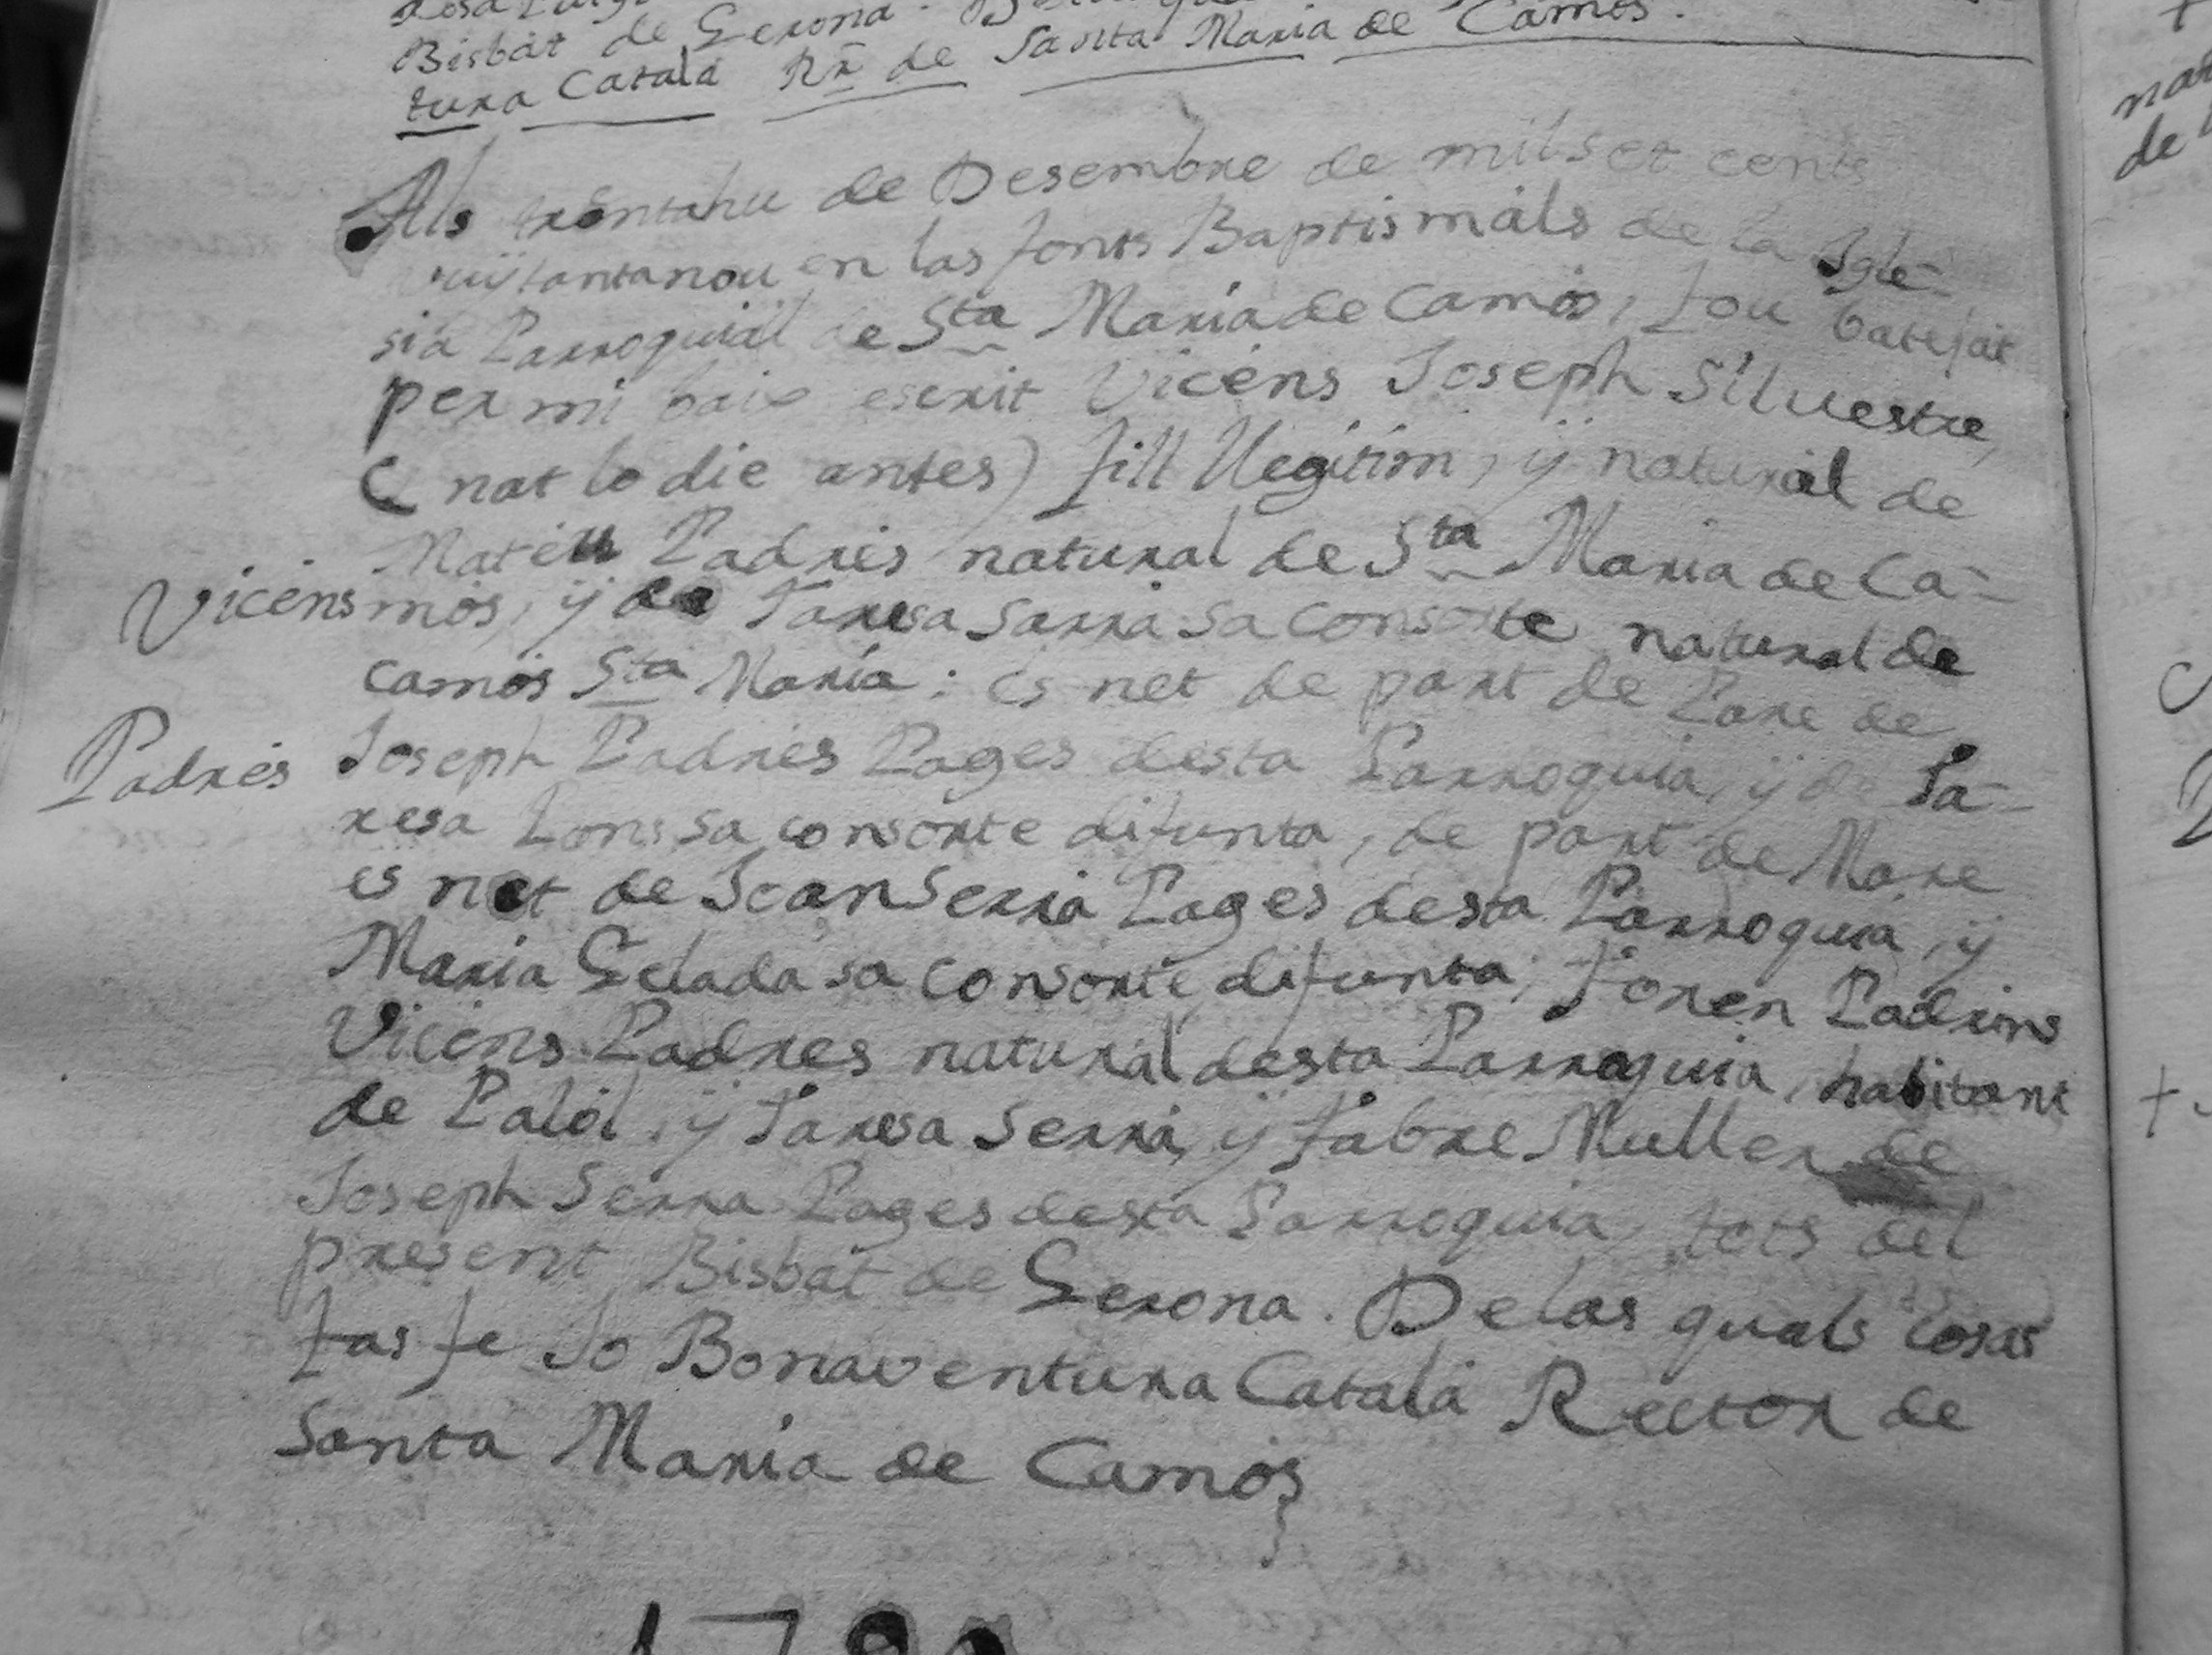 Bisbat de Gerona.
tura Catalá Rr̃ de Santa Maria de Camos.
Als trentahu de Desembre de mil set cents
vuÿtantanou en las fonts Baptismals de la Igle-
sia Parroquial de Sta Maria de Camós, fou batejat
per mi baix escrit Vicéns Joseph Silvestre,
( nat lo die antes) fill llegítim, ÿ natural de
Matéu Padrés natural de Sta Maria de Ca-
Vicéns mós, ÿ de Taresa Sarra sa consorte natural de
camós Sta Maria: és net de part de Pare de
Padrés Joseph Padrés Pages desta Parroquia, ÿ de Ta-
resa Pons sa consorte difunta, de part de Mare
es net de Joan Serra Pages desta Parroquia, ÿ
Maria Gelada sa consorte difunta; foren Padrins
Vicéns Padres natural desta Parroquia, habitant
de Palol, ÿ Taresa Serra, ÿ fabre Muller de
Joseph Serra Pages desta Parroquia, tots del
present Bisbat de Gerona. De las quals cosas
fas fe Jo Bonaventura Catalá Rector de
Santa Maria de Camós